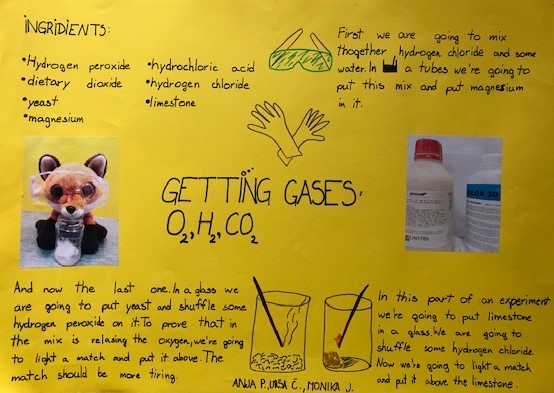 INGRIDIENTS:
•Hydrogen peroxide
•dietary dioxide
•yeast
•magnesium
•hydrochloric acid
•hydrogen chloride
•limestone
First we are going to mix
thogether hydrogen chloride and some
water. In a tubes we're going to
put this mix and put magnesium
in it.
GETTING GASES:
O2, H2, CO2
UN1789
And now the last one. In a glass we
are going to put yeast and shuffle some
hydrogen peroxide on it. To prove that in
the mix is relasing the oxygen, we're going
to light a match and put it above. The
match should be more tiring.
In this part of an experiment
we're going to put limestone
in a glass. We are going to
shuffle some hydrogen chloride.
Now we're going to light a match
and put it above the limestone.
ANJA P., URŠA Č., MONIKA J.